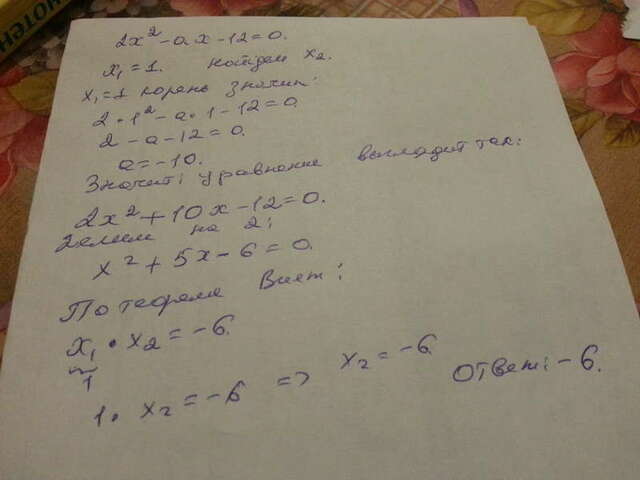 нотен
2x² - ax - 12 = 0.
x₁ = 1. найдем x₂.
x₁ = 1 корень значит:
2 · 1² - a · 1 - 12 = 0
2 - a - 12 = 0.
a = -10.
Значит: уравнение выглядит так:
2x² + 10x - 12 = 0.
Делим на 2:
x² + 5x - 6 = 0.
По теореме Виет:
x₁ · x₂ = -6.
1
1 · x₂ = -6 => x₂ = -6. Ответ: -6.